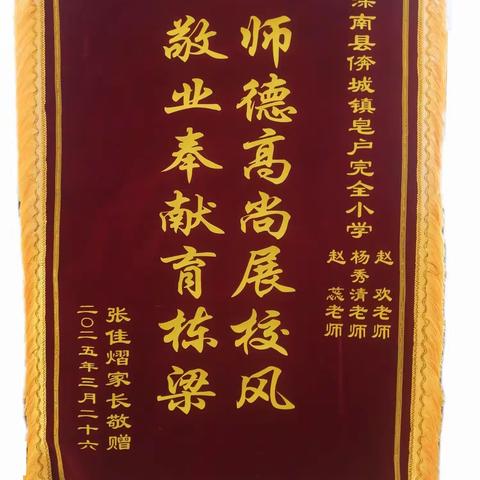 滦南县倴城镇皂户完全小学
赵 欢老师
杨秀清老师
赵 蕊老师
师德高尚展校风
敬业奉献育栋梁
张佳熠家长敬赠
二〇二五年三月二十六